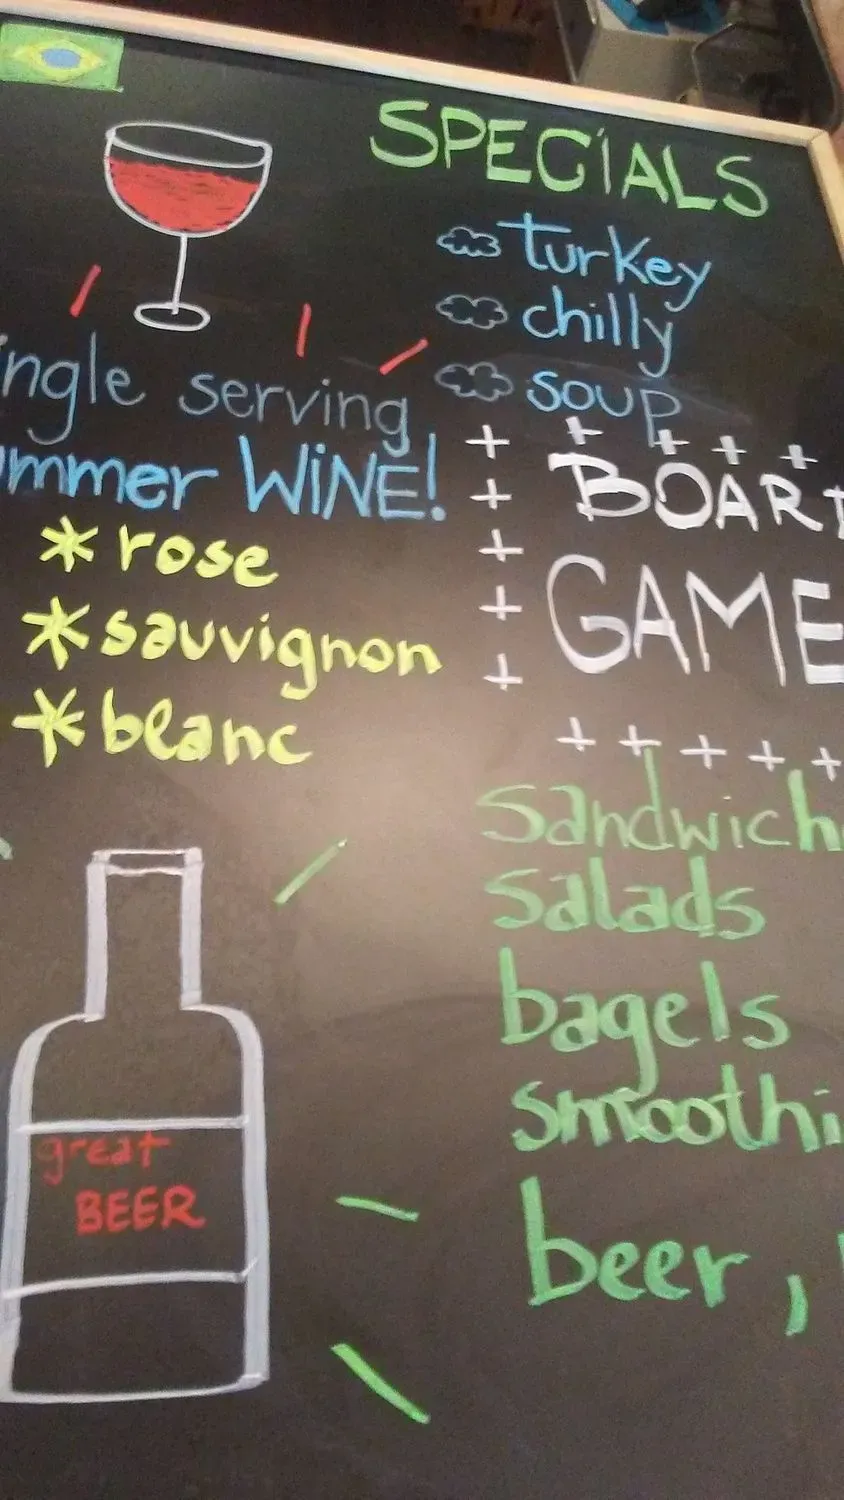 SPECIALS
turkey
chilly
soup
ingle serving
ummer WINE!
* rose
* sauvignon
* blanc
BOAR
GAME
sandwich
salads
bagels
smoothi
beer ,
great
BEER